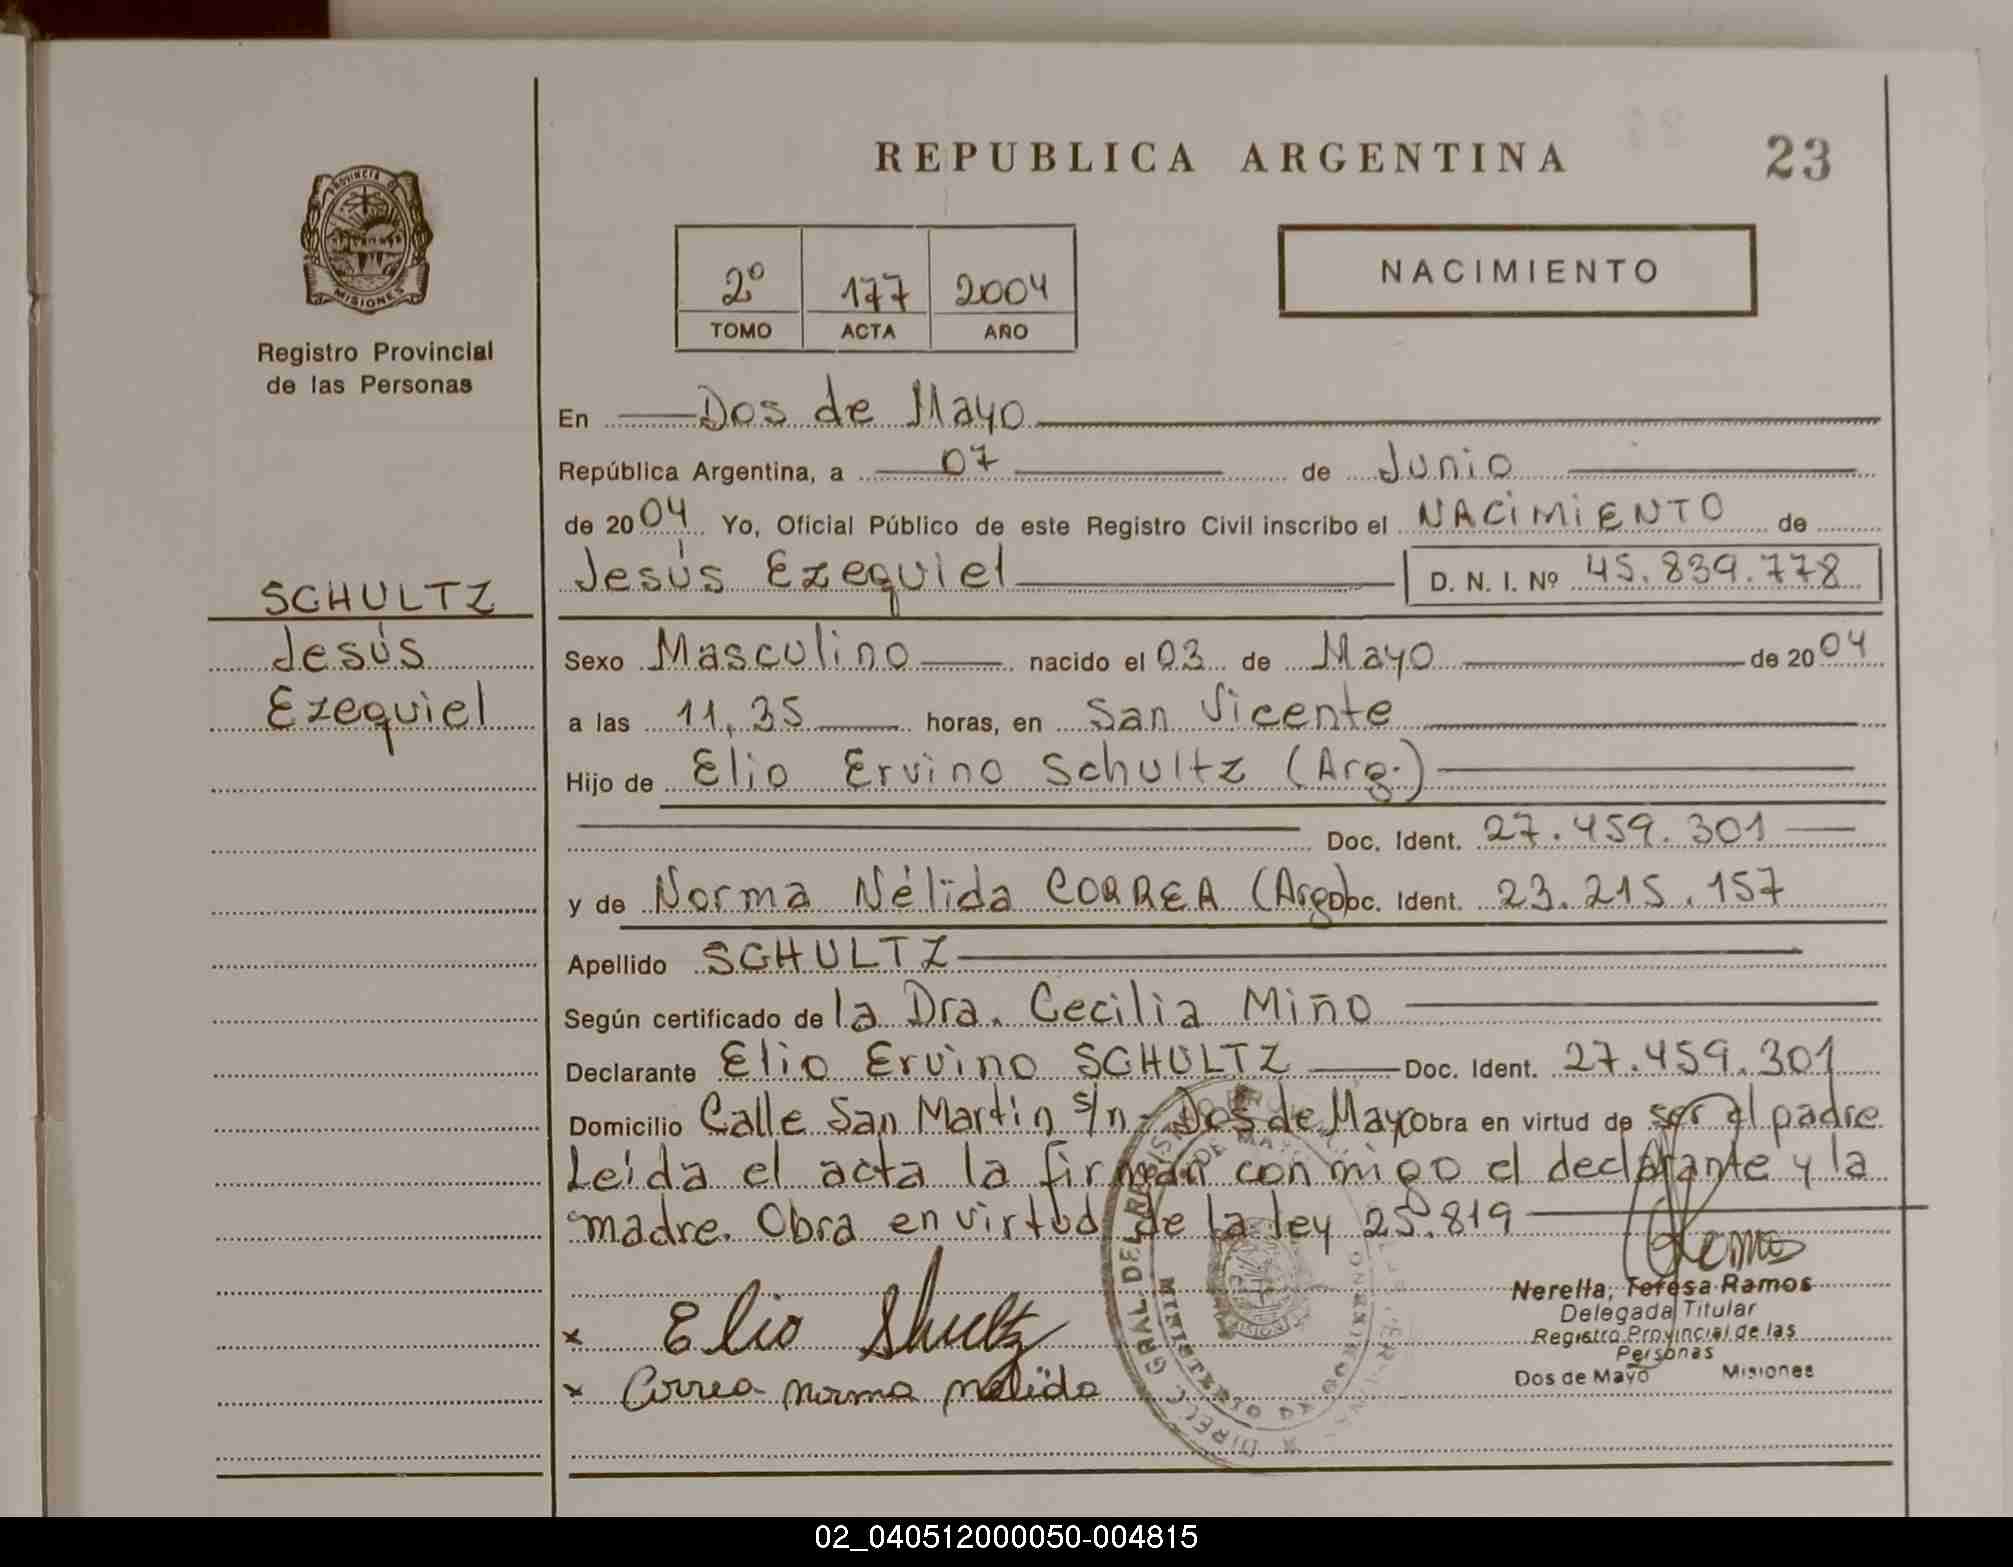 REPUBLICA ARGENTINA
23
PROVINCIA DE
MISIONES
Registro Provincial
de las Personas
2º 177 2004
TOMO ACTA AÑO
NACIMIENTO
En Dos de Mayo
República Argentina, a 07 de Junio
de 2004 Yo, Oficial Público de este Registro Civil inscribo el NACIMIENTO de
Jesús Ezequiel D. N. I. Nº 45.839.778
SCHULTZ
Jesús
Ezequiel
Sexo Masculino nacido el 03 de Mayo de 2004
a las 11,35 horas, en San Vicente
Hijo de Elio Ervino Schultz (Arg.)
Doc. Ident. 27.459.301
y de Norma Nélida CORREA (Arg) Doc. Ident. 23.215.157
Apellido SCHULTZ
Según certificado de la Dra. Cecilia Miño
Declarante Elio Ervino SCHULTZ Doc. Ident. 27.459.301
Domicilio Calle San Martin s/n - Dos de Mayo Obra en virtud de ser el padre
Leida el acta la firman con migo el declarante y la
madre. Obra en virtud de la ley 25.819
Nerella, Teresa Ramos
Delegada Titular
Registro Provincial de las
Personas
Dos de Mayo Misiones
x Elio Shultz
x Correa norma nelida
02_040512000050-004815